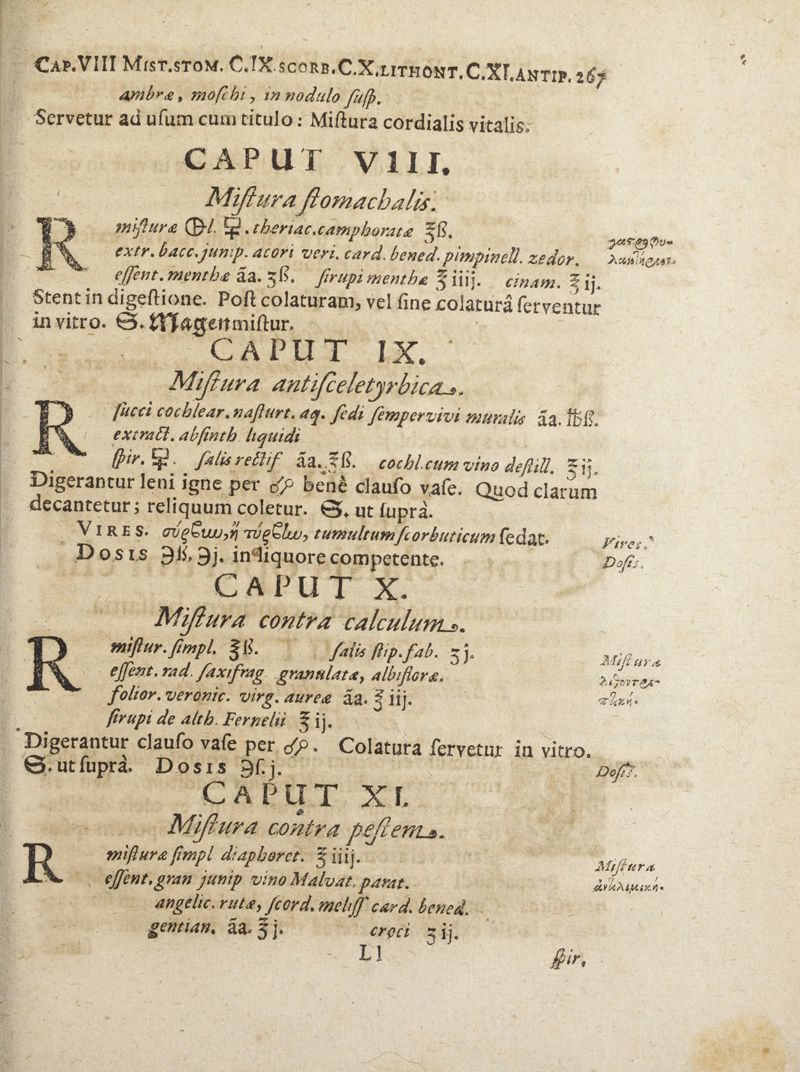 CAP.VIII MIST.STOM. C.IX.SCORB.C.X.LITHONT.C.XI.ANTIP. 267
ambræ, moſchi, in nodulo ſuſp.
Servetur ad uſum cum titulo: Miſtura cordialis vitalis.
CAPUT VIII.
Miſtura ſtomachalis.
℞ miſturæ . theriac. camphoratæ ℥ß.
extr. bacc. junip. acori veri. card. bened. pimpinell. zedor.
eſſent. menthæ āa. ʒß. ſirupi menthæ ℥ iiij. cinam. ℥ ij.
Stent in digeſtione. Poſt colaturam, vel ſine colaturâ ſerventur
in vitro. S. Magenmiſtur.
CAPUT IX.
Miſtura antiſceletyrbica.
℞ ſucci cochlear. naſturt. aq. ſedi ſempervivi muralis āa. ℔ß.
extract. abſinth liquidi
ſpir. . ſalis rectif āa. ℥ß. cochl. cum vino deſtill. ℥ ij.
Digerantur leni igne per benè clauſo vaſe. Quod clarum
decantetur; reliquum coletur. S. ut ſuprà.
VIRES. tumultum ſcorbuticum ſedat.
Vires.
DOSIS ℈ß. ℈j. in liquore competente.
Doſis.
CAPUT X.
Miſtura contra calculum.
℞ miſtur. ſimpl. ℥ß. ſalis ſtip. fab. ʒ j.
Miſtura
eſſent. rad. ſaxifrag granulatæ, albifloræ.
folior. veronic. virg. aureæ āa. ℥ iij.
ſirupi de alth. Fernelii ℥ ij.
Digerantur clauſo vaſe per . Colatura ſervetur in vitro.
S. ut ſuprà. DOSIS ℈ſ. j.
Doſis.
CAPUT XI.
Miſtura contra peſtem.
℞ miſturæ ſimpl diaphoret. ℥ iiij.
Miſtura
eſſent. gran junip vino Malvat. parat.
ἀντιλοιμική.
angelic. rutæ, ſcord. meliſſ card. bened.
gentian. āa. ℥ j. croci ʒ ij.
Ll ſpir.